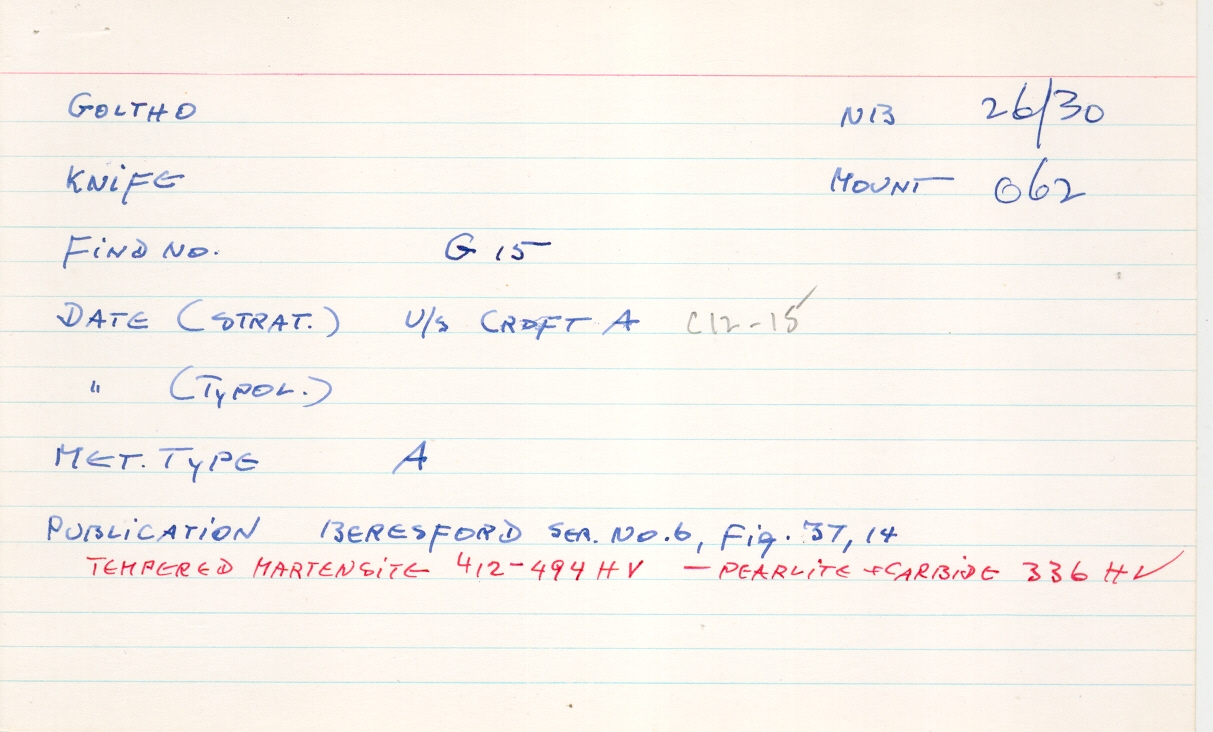 GOLTHO NB 26/30
KNIFE MOUNT 062
FIND NO. G 15
DATE (STRAT.) U/S CROFT A C12-15
" (TYPOL.)
MET. TYPE A
PUBLICATION BERESFORD SER. NO. 6, Fig. 37, 14
TEMPERED MARTENSITE 412-494 HV — PEARLITE + CARBIDE 336 HV